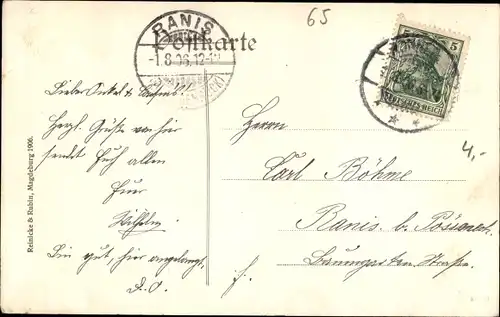 65
Postkarte
RANIS
-1.8.06.12-
5
DEUTSCHES REICH
4,-
Lieber Onkel &
Herzl. Grüße von hier
sendet Euch allen
Euer
Wilhelm.
Bin gut, hier angelangt.
D.O.
Herrn
Carl Böhme
Ranis b. Pössneck
Baumgarten Straße.
Reinicke & Rubin, Magdeburg 1906.